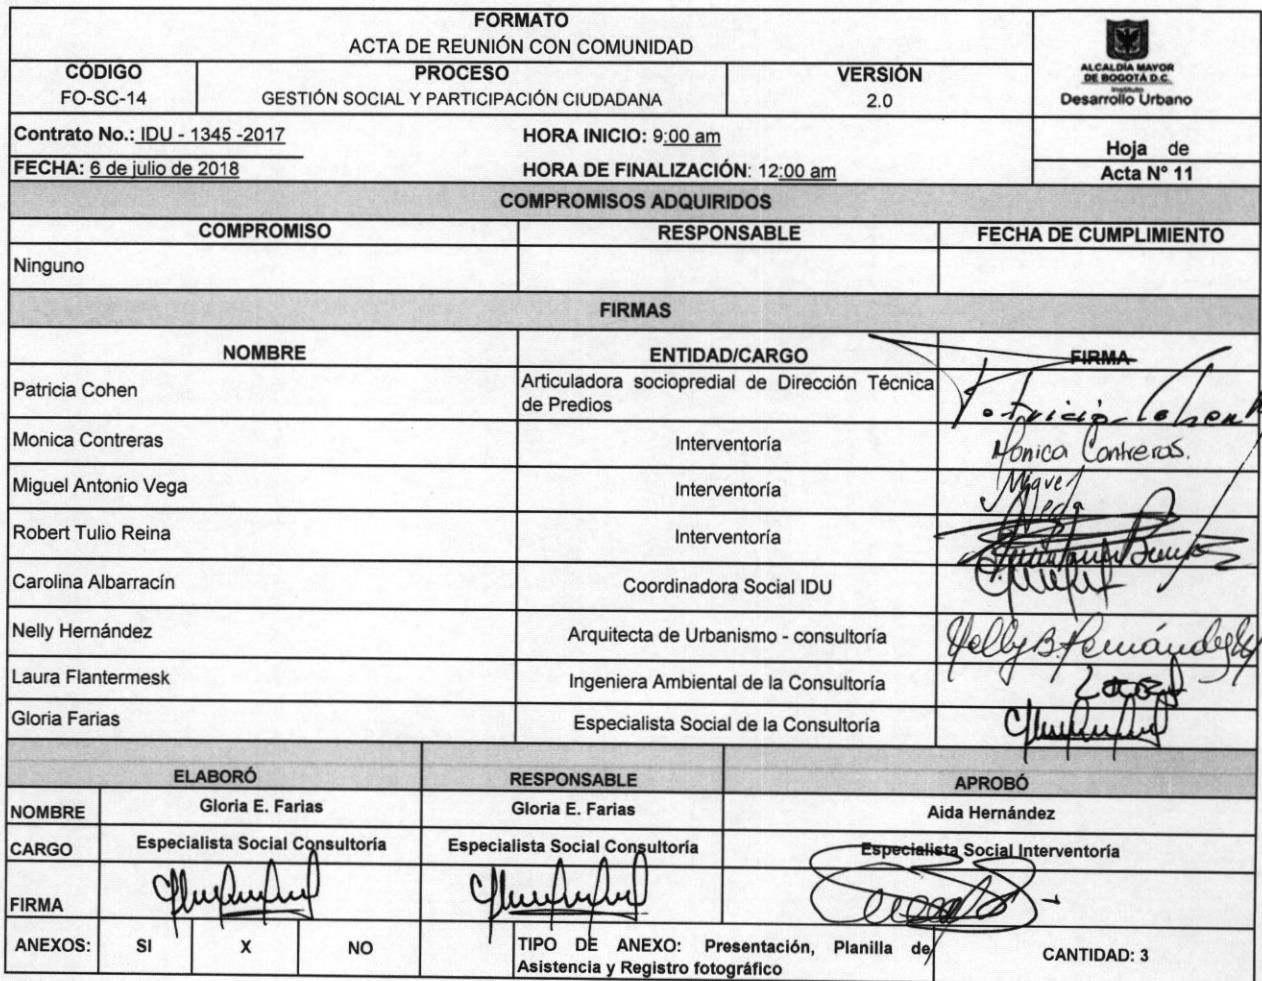 FORMATO
ACTA DE REUNIÓN CON COMUNIDAD
ALCALDÍA MAYOR
DE BOGOTÁ D.C.
Instituto
Desarrollo Urbano
CÓDIGO PROCESO VERSIÓN
FO-SC-14 GESTIÓN SOCIAL Y PARTICIPACIÓN CIUDADANA 2.0
Contrato No.: IDU - 1345 -2017 HORA INICIO: 9:00 am
Hoja de
FECHA: 6 de julio de 2018 HORA DE FINALIZACIÓN: 12:00 am
Acta N° 11
COMPROMISOS ADQUIRIDOS
COMPROMISO RESPONSABLE FECHA DE CUMPLIMIENTO
Ninguno
FIRMAS
NOMBRE ENTIDAD/CARGO FIRMA
Patricia Cohen Articuladora sociopredial de Dirección Técnica
de Predios Patricia Cohen
Monica Contreras Interventoría Monica Contreras.
Miguel Antonio Vega Interventoría Miguel
Vega
Robert Tulio Reina Interventoría
Carolina Albarracín Coordinadora Social IDU
Nelly Hernández Arquitecta de Urbanismo - consultoría Nelly B. Hernández
Laura Flantermesk Ingeniera Ambiental de la Consultoría
Gloria Farias Especialista Social de la Consultoría
ELABORÓ RESPONSABLE APROBÓ
NOMBRE Gloria E. Farias Gloria E. Farias Aida Hernández
CARGO Especialista Social Consultoría Especialista Social Consultoría Especialista Social Interventoría
FIRMA
ANEXOS: SI X NO TIPO DE ANEXO: Presentación, Planilla de
Asistencia y Registro fotográfico CANTIDAD: 3